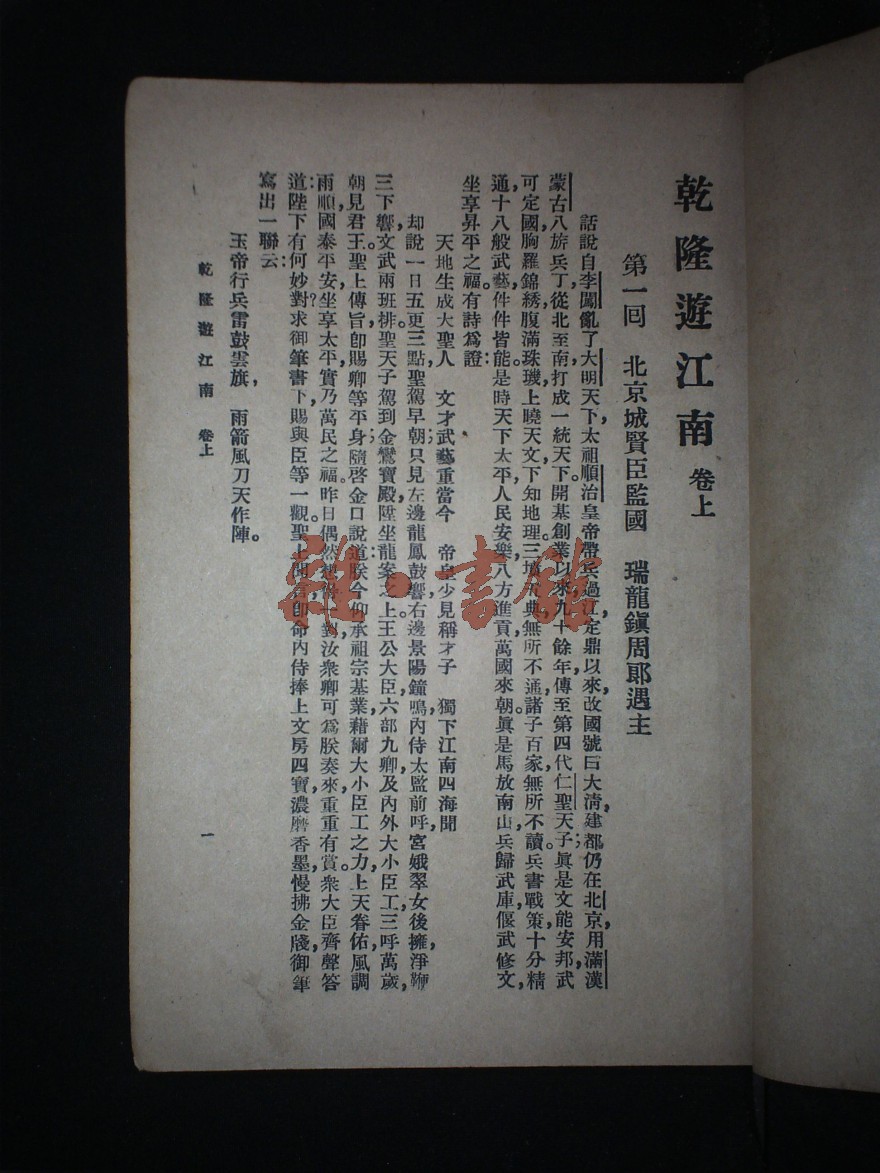 乾隆遊江南 卷上
第一回 北京城賢臣監國 瑞龍鎮周郎遇主
話說自李闖亂了大明天下,太祖順治皇帝帶兵過江,定鼎以來,改國號曰大淸,建都仍在北京,用滿漢
蒙古八旂兵丁,從北至南,打成一統天下。開基創業以來,九十餘年,傳至第四代仁聖天子;眞是文能安邦,武
可定國,胸羅錦綉,腹滿珠璣,上曉天文,下知地理,三墳 典,無所不通,諸子百家,無所不讀。兵書戰策,十分精
通,十八般武藝,件件皆能。是時天下太平,人民安樂,八方進貢,萬國來朝。眞是馬放南山,兵歸武庫,偃武修文,
坐享昇平之福。有詩爲證:
天地生成大聖人 文才武藝重當今 帝皇少見稱才子 獨下江南四海聞
却說一日五更三點,聖駕早朝;只見左邊龍鳳鼓響,右邊景陽鐘鳴,內侍太監前呼,宮娥翠女後擁,淨鞭
三下響,文武兩班排。聖天子駕到金鸞寶殿,陞坐龍案之上;王公大臣,六部九卿,及內外大小臣工,三呼萬歲,
朝見君王。聖上傳旨,卽賜卿等平身;隨啓金口說道:朕今仰承祖宗基業,藉爾大小臣工之力,上天眷佑,風調
雨順,國泰平安,坐享太平,實乃萬民之福。昨日偶然想 對,汝衆卿可爲朕奏來,重重有賞。衆大臣齊聲答
道:陛下有何妙對?求御筆書下,賜與臣等一觀。聖上聞 卽命內侍捧上文房四寶,濃磨香墨,慢拂金牋,御筆
寫出一聯云:
玉帝行兵雷鼓雲旗, 雨箭風刀天作陣。
乾隆遊江南 卷上
一
雜·書館